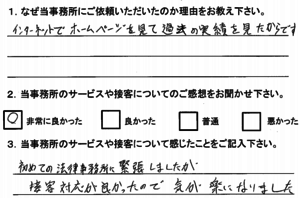 1. なぜ当事務所にご依頼いただいたのか理由をお教え下さい。
インターネットでホームページを見て過去の実績を見たからです
2. 当事務所のサービスや接客についてのご感想をお聞かせ下さい。
非常に良かった 良かった 普通 悪かった
3. 当事務所のサービスや接客について感じたことをご記入下さい。
初めての法律事務所に緊張しましたが
接客対応が良かったので気が楽になりました